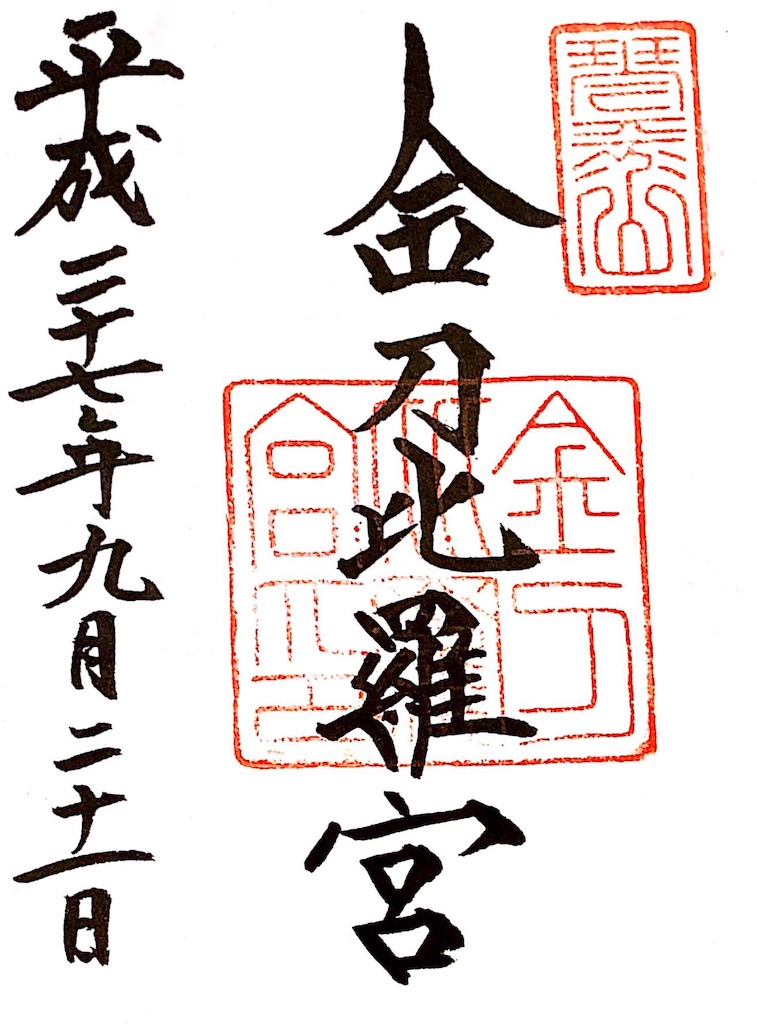 琴平山
金刀比羅宮
金刀
比羅
宮印
平成二十七年九月二十一日